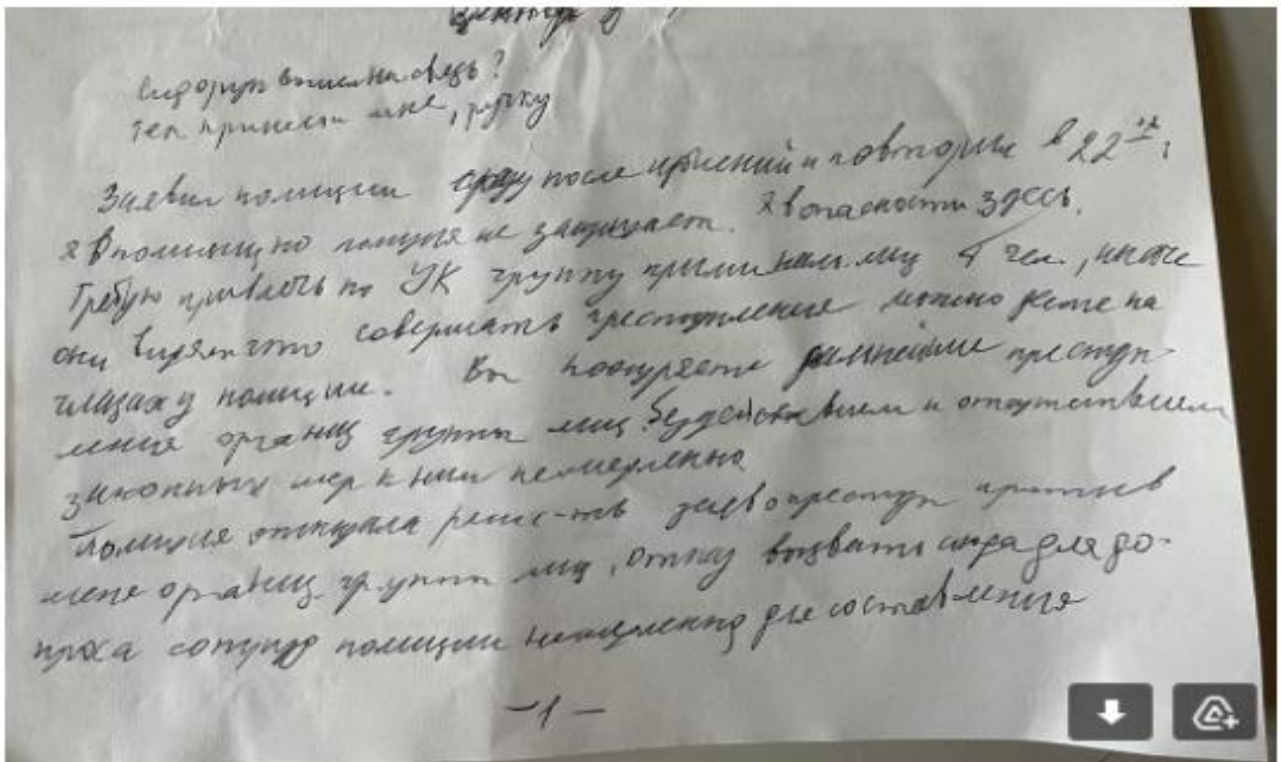 вышел на связь?
принести мне, ручку
Заявил полиции сразу после и повторил в 22
я в полицию полиция не защищает. Я в опасности здесь.
Требую привлечь по УК группу криминальн. лиц 4 чел., иначе
они видят что совершать преступления можно даже на
глазах у полиции. Вы поощряете дальнейшие преступ-
ления организ группы лиц бездействием и отсутствием
законных мер к ним немедленно
Полиция отказала заяв о преступ против
меня организ. группы лиц. Отказ вызвать сюда для до-
проса сотрудр полиции немедленно для составления
-1-